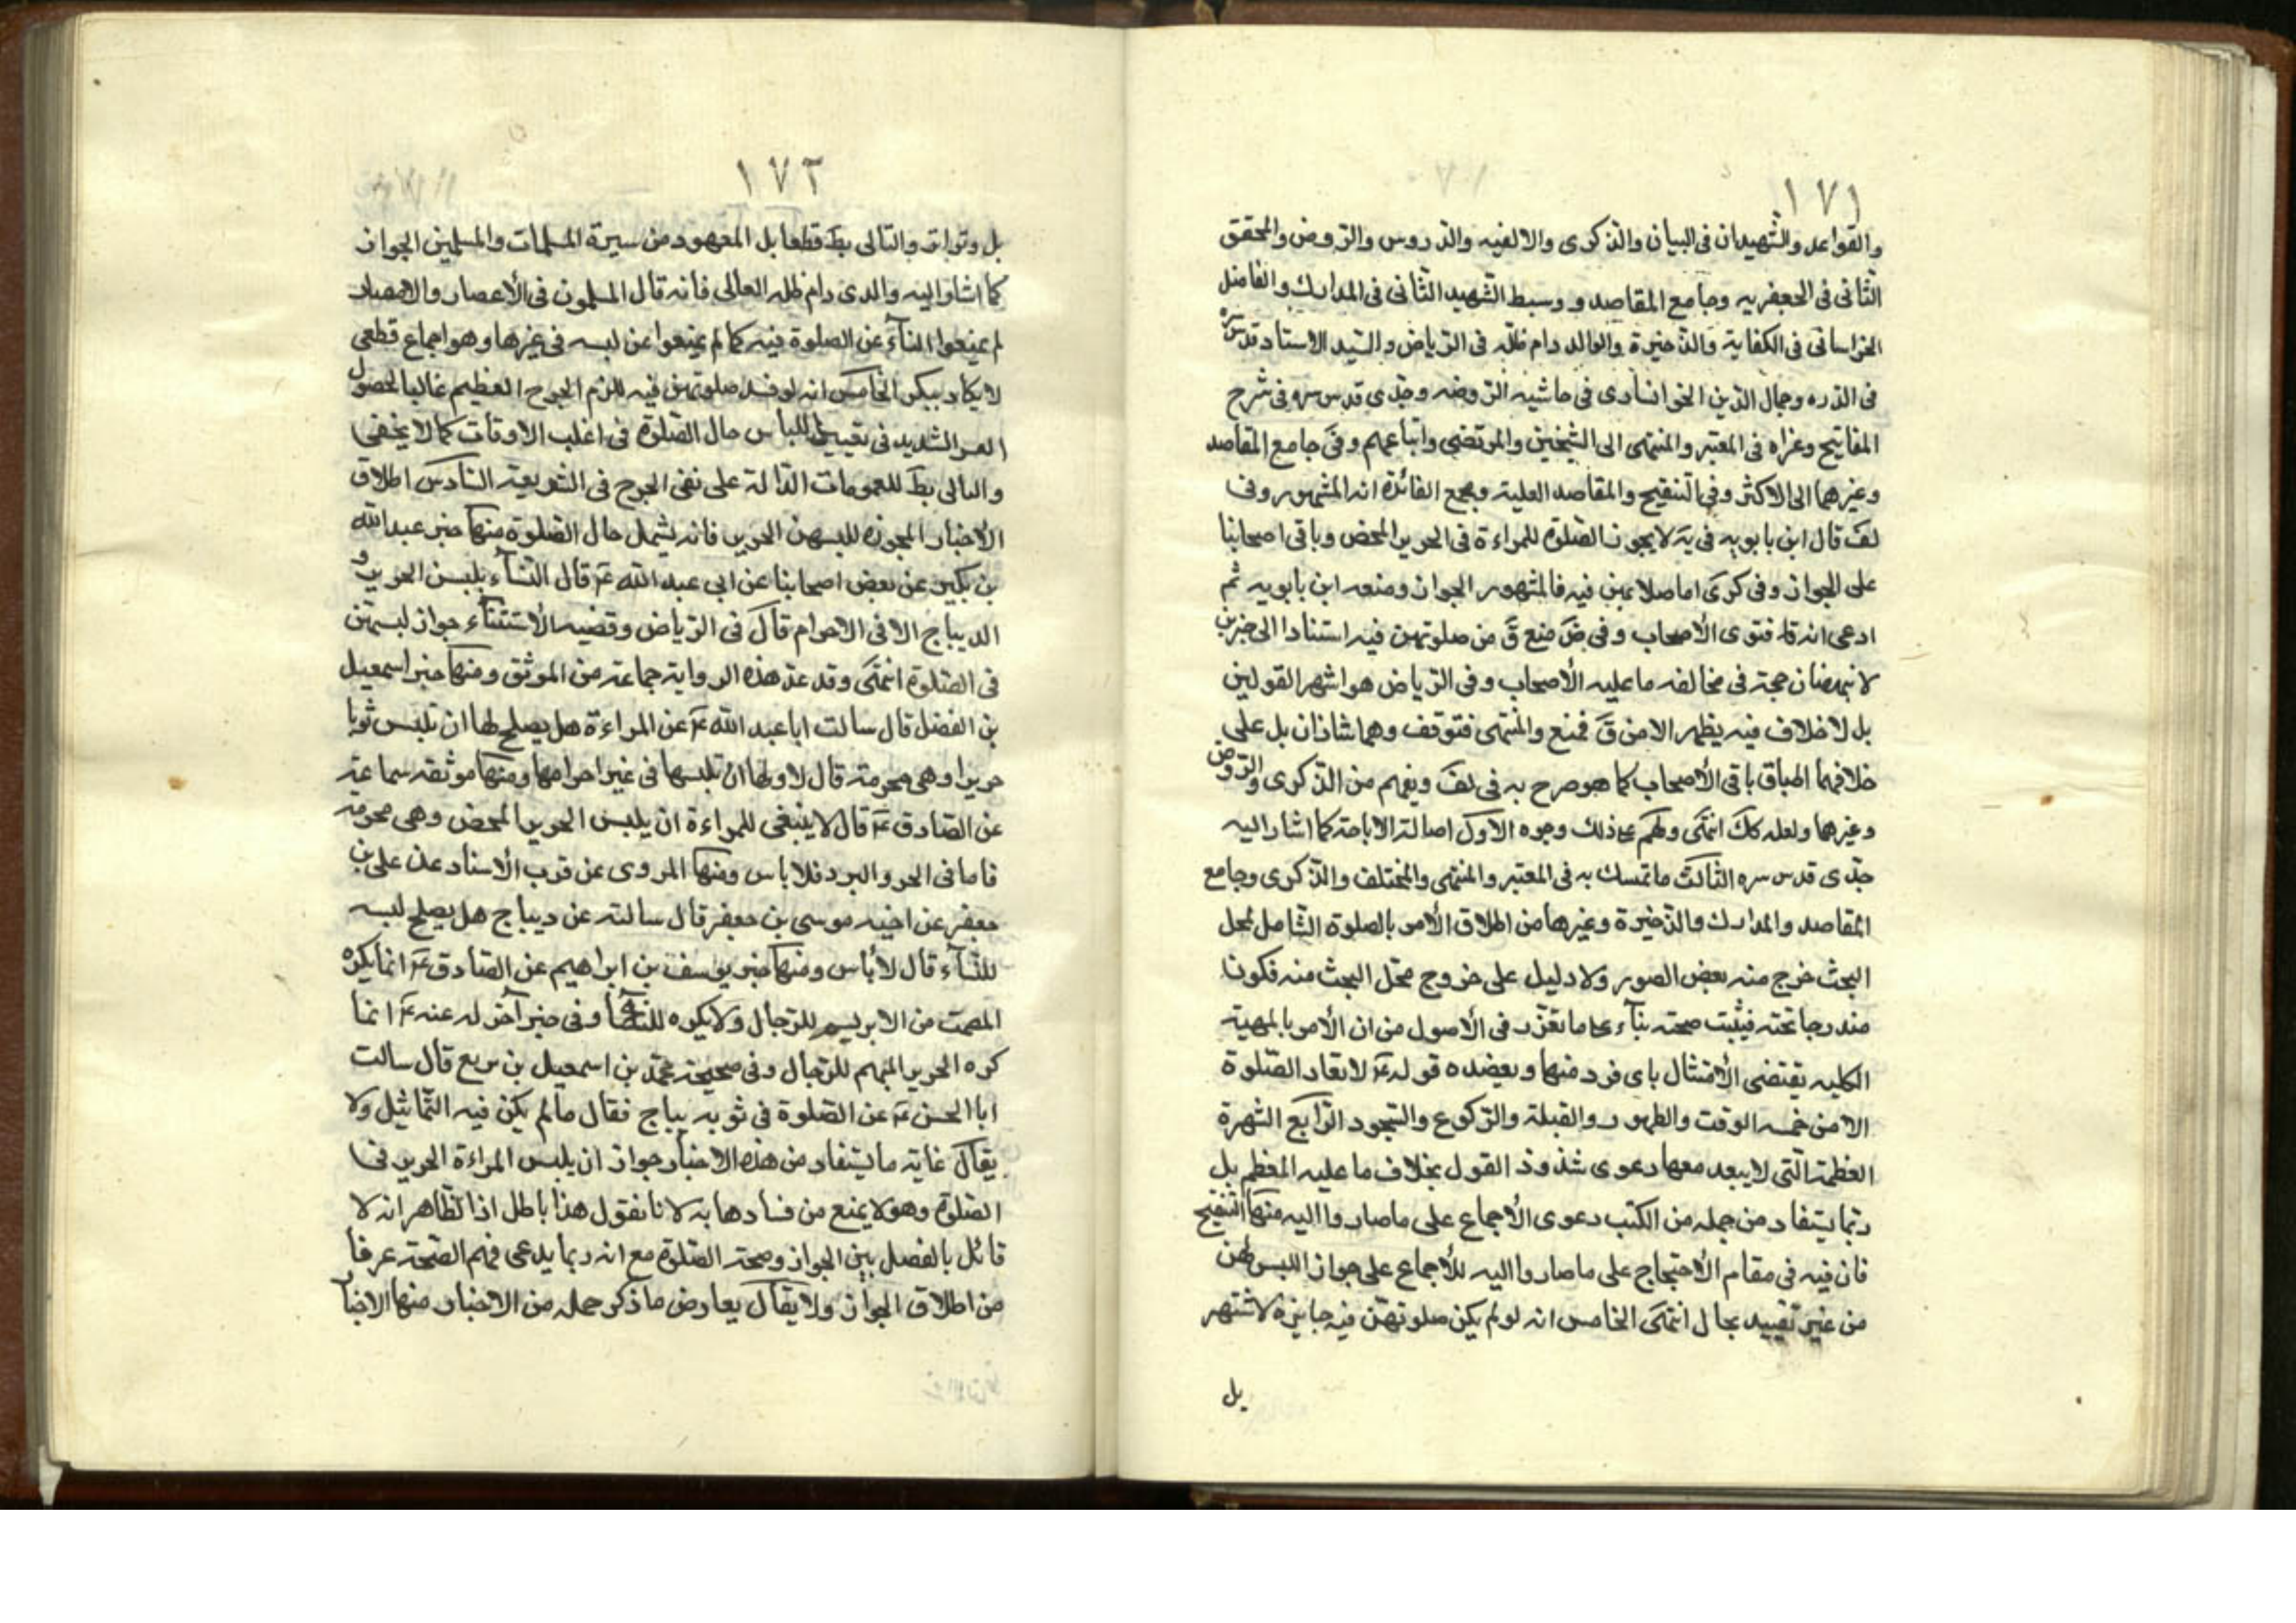 ١٧١
والقواعد والشهيدان في البيان والذكرى والالفيه والدروس والروض والمحقق
الثانى فى الجعفريه وجامع المقاصد وسبط الشهيد الثانى فى المدارك والفاضل
الخراسانى فى الكفاية والذخيرة والوالد دام ظله فى الرياض والسيد الاستاد قدس سره
فى الدره وجمال الدين الخوانسارى فى حاشيه الروضه وجدى قدس سره فى شرح
المفاتيح وعزاه فى المعتبر والمنتهى الى الشيخين والمرتضى واتباعهم وفى جامع المقاصد
وغيرهما الى الاكثر وفى التنقيح والمقاصد العلية ومجمع الفائدة انه المشهور وفى
لف قال ابن بابويه فى يه لا يجوز الصلوة للمراءة فى الحرير المحض وباقى اصحابنا
على الجواز وفى كرى اما صلاتهن فيه فالمشهور الجواز ومنعه ابن بابويه ثم
ادعى انه قلـ فتوى الأصحاب وفى ض منع ق من صلوتهن فيه استنادا الى خبرين
لا ينهضان حجة فى مخالفه ما عليه الأصحاب وفى الرياض هو اشهر القولين
بل لا خلاف فيه يظهر الا من ق فمنع والمنتهى فتوقف وهما شاذان بل على
خلافهما اطباق باقى الأصحاب كما هو صرح به فى لف ويفهم من الذكرى والروض
وغيرهما ولعله كك انتهى ولهم على ذلك وجوه الاول اصالة الاباحة كما اشار اليه
جدى قدس سره الثالث ما تمسك به فى المعتبر والمنتهى والمختلف والذكرى وجامع
المقاصد والمدارك والذخيرة وغيرها من اطلاق الأمر بالصلوة الشامل لمحل
البحث خرج منه بعض الصور ولا دليل على خروج محل البحث منه فكون
مندرجا تحته فيثبت صحته بنآء على ما تقرر فى الأصول من ان الأمر بالمهية
الكليه يقتضى الأمتثال باى فرد منها ويعضده قوله ع لا تعاد الصلوة
الا من خمسه الوقت والطهور والقبلة والركوع والسجود الرابع الشهرة
العظمة التى لا يبعد معها دعوى شذوذ القول بخلاف ما عليه المعظم بل
ربما يستفاد من جمله من الكتب دعوى الأجماع على ما صاروا اليه منها التنقيح
فان فيه فى مقام الأحتجاج على ما صاروا اليه للأجماع على جواز اللبس لهن
من غير تقييد بحال انتهى الخامس انه لو لم يكن صلوتهن فيه جايزة لاشتهر
بل
١٧٢
بل وتواتر والتالى بط قطعا بل المعهود من سيرة المسلمات والمسلمين الجواز
كما اشار اليه والدى دام ظله العالى فانه قال المسلمون فى الأعصار والامصار
لم يمنعوا النسآء عن الصلوة فيه كما لم يمنعوا عن لبسه فى غيرها وهو اجماع قطعى
لا يكاد ينكر الخامس انه لو فسد صلوتهن فيه للزم الحرج العظيم غالبا لحصول
العسر الشديد فى تغيير اللباس حال الصلوة فى اغلب الاوقات كما لا يخفى
والتالى بط للعمومات الدالة على نفى الحرج فى الشريعة السادس اطلاق
الأخبار المجوزة للبسهن الحرير فانه يشمل حال الصلوة منها خبر عبد الله
بن بكير عن بعض اصحابنا عن ابى عبد الله ع قال النسآء يلبسن الحرير و
الديباج الا فى الاحرام قال فى الرياض وقضيه الأستثنآء جواز لبسهن
فى الصلوة انتهى وقد عد هذه الرواية جماعة من الموثق ومنها خبر اسمعيل
بن الفضل قال سالت ابا عبد الله ع عن المراءة هل يصلح لها ان تلبس ثوبا
حريرا وهى محرمة قال لا ولها ان تلبسها فى غير احرامها ومنها موثقه سماعة
عن الصادق ع قال لا ينبغى للمراءة ان يلبس الحرير المحض وهى محرمة
فاما فى الحر والبرد فلا باس ومنها المروى عن قرب الأسناد عن على بن
جعفر عن اخيه موسى بن جعفر قال سالته عن ديباج هل يصلح لبسه
للنسآء قال لا بأس ومنها خبر يوسف بن ابراهيم عن الصادق ع انما يكره
المصمت من الابريسم للرجال ولا يكره للنسآء وفى خبر آخر له عنه ع انما
كره الحرير المبهم للرجال وفى صحيحة محمد بن اسمعيل بن بزيع قال سالت
ابا الحسن ع عن الصلوة فى ثوب ديباج فقال ما لم يكن فيه التماثيل ولا
يقال غاية ما يستفاد من هذه الاخبار جواز ان يلبس المراءة الحرير فى
الصلوة وهو لا يمنع من فسادها به لانا نقول هذا باطل اذ الظاهر انه لا
قائل بالفصل بين الجواز وصحة الصلوة مع انه ربما يدعى فهم الصحة عرفا
من اطلاق الجواز ولا يقال يعارض ما ذكر جمله من الاخبار منها الاخبار